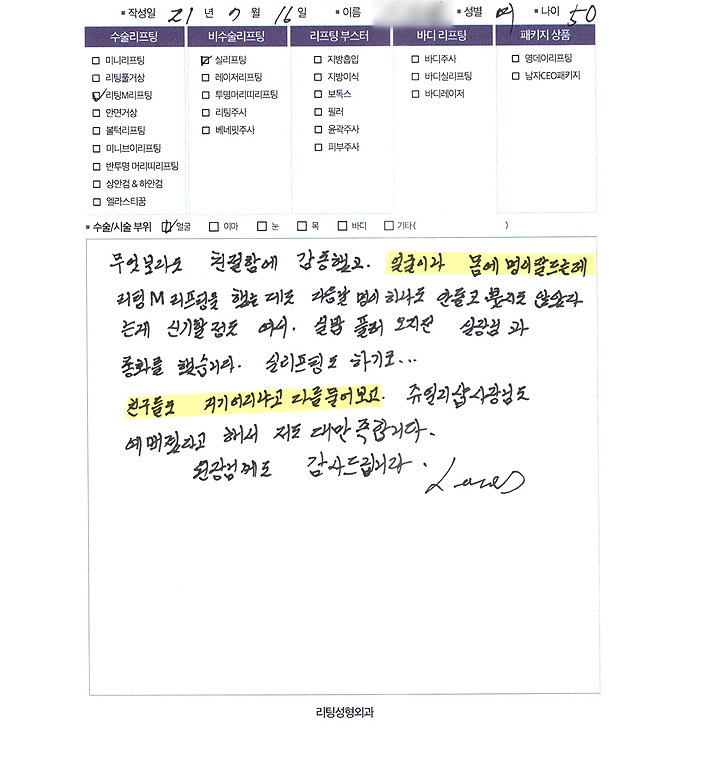 작성일 21 년 7 월 16 일 이름 성별 여 나이 50
수술리프팅 비수술리프팅 리프팅 부스터 바디 리프팅 패키지 상품
미니리프팅 실리프팅 지방흡입 바디주사 영데이리프팅
리팅풀거상 레이저리프팅 지방이식 바디실리프팅 남자CEO패키지
리팅M리프팅 투명머리띠리프팅 보톡스 바디레이저
안면거상 리팅주사 필러
볼턱리프팅 베네핏주사 윤곽주사
미니브이리프팅 피부주사
반투명 머리띠리프팅
상안검 & 하안검
엘라스티꿈
수술/시술 부위 얼굴 이마 눈 목 바디 기타( )
무엇보다도 친절함에 감동했고. 얼굴이과 몸에 멍이잘드는데
리팅 M 리프팅을 했는 데도 다음날 멍이 하나도 안들고 붓지도 않았다
는게 신기할 정도 여서. 실밥 풀러 오기전 실장님 과
통화를 했습니다. 실리프팅도 하기로...
친구들도 거기어디라고 다들물어보고. 쥬얼리샵사장님도
예뻐졌다고 해서 저도 대만족합니다.
원장님께도 감사드립니다.
리팅성형외과